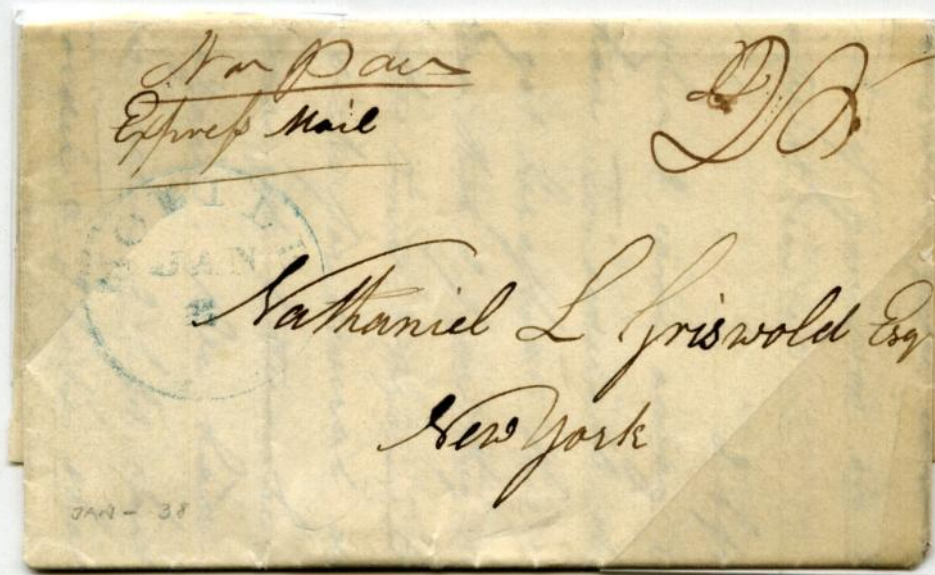 Express Mail
MOBILE
JAN
Nathaniel L Griswold Esq
New York
JAN - 38